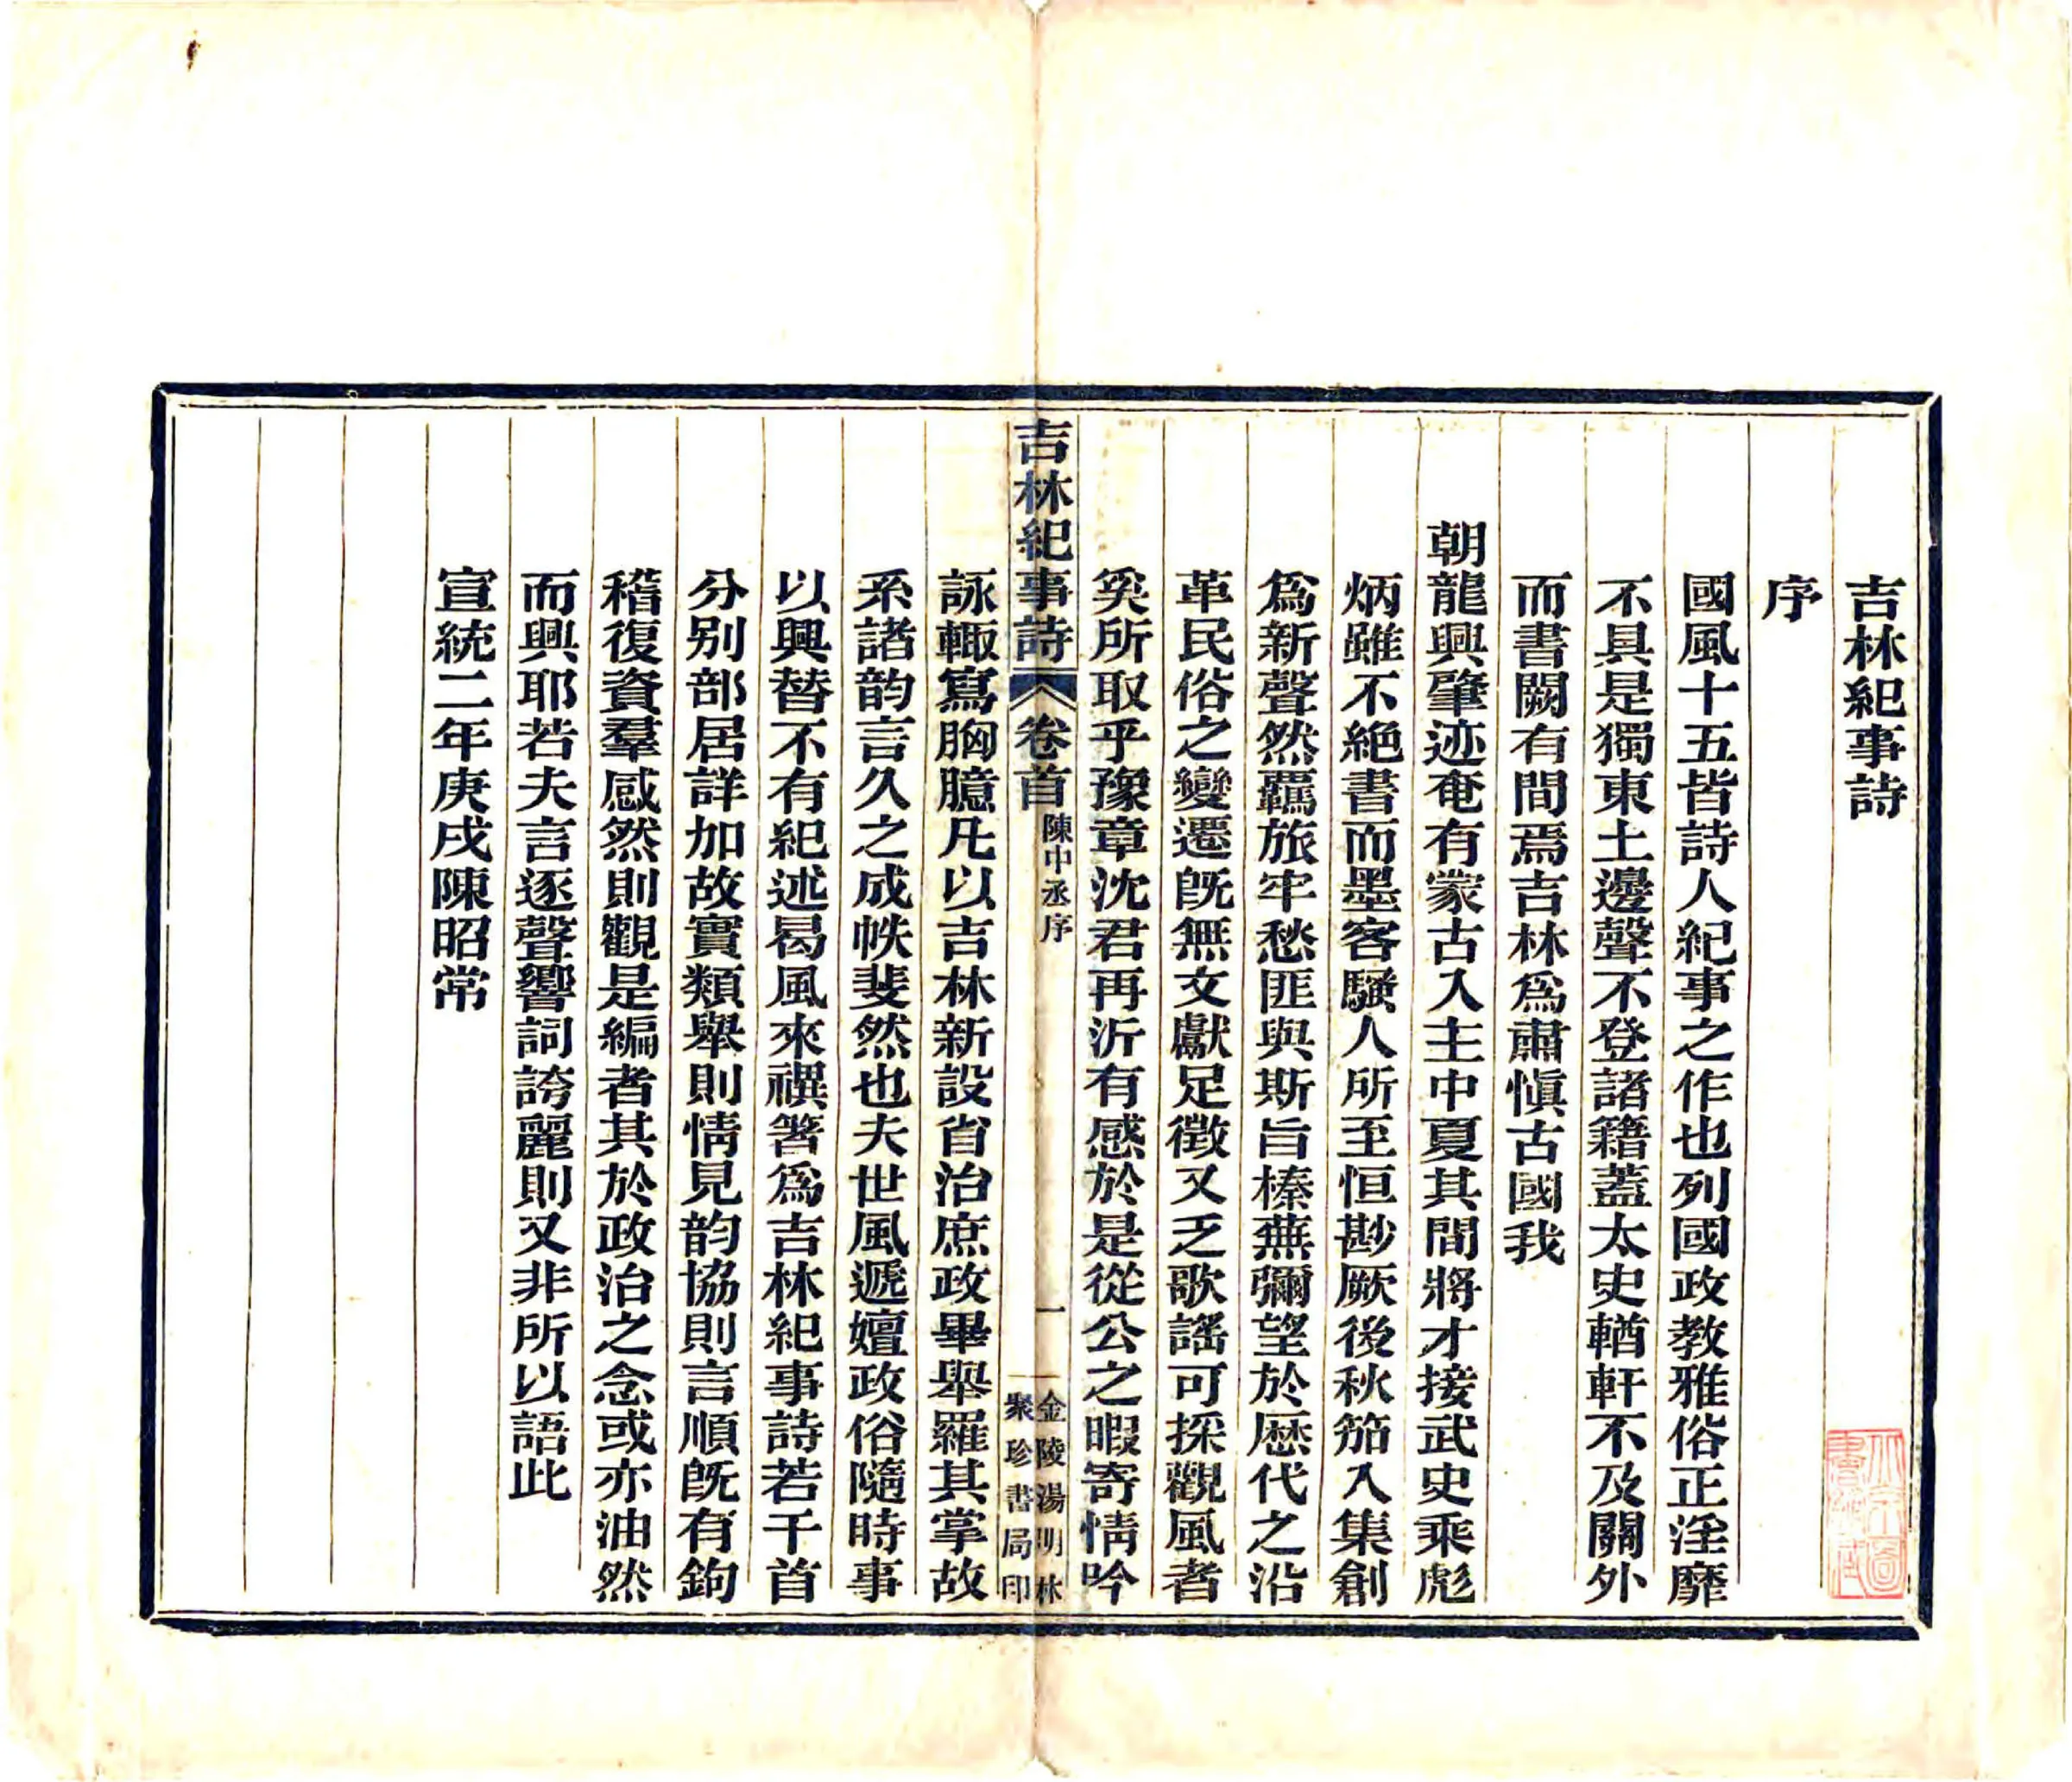 吉林紀事詩
序
國風十五皆詩人紀事之作也列國政教雅俗正淫靡
不具是獨東土邊聲不登諸籍蓋太史輶軒不及關外
而書闕有間焉吉林爲肅愼古國我
朝龍興肇迹奄有蒙古入主中夏其間將才接武史乘彪
炳雖不絕書而墨客騷人所至恒尠厥後秋笳入集創
爲新聲然羈旅牢愁匪與斯旨榛蕪彌望於歷代之沿
革民俗之變遷旣無文獻足徵又乏歌謠可採觀風者
奚所取乎豫章沈君再沂有感於是從公之暇寄情吟
吉林紀事詩
卷首
陳中丞序
一
金陵湯明林
聚珍書局印
詠輙寫胸臆凡以吉林新設省治庶政畢舉羅其掌故
系諸韵言久之成帙斐然也夫世風遞嬗政俗隨時事
以興替不有紀述曷風來禩箸爲吉林紀事詩若干首
分別部居詳加故實類舉則情見韵協則言順旣有鉤
稽復資羣感然則觀是編者其於政治之念或亦油然
而興耶若夫言逐聲響詞誇麗則又非所以語此
宣統二年庚戌陳昭常